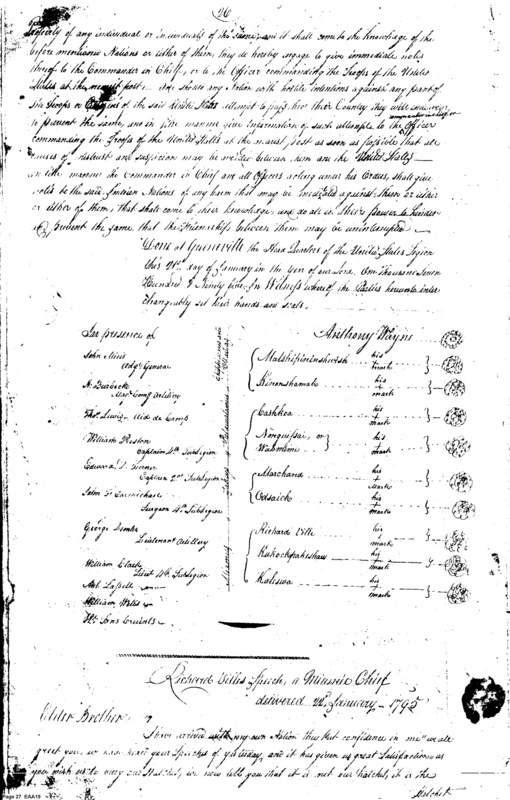 26
property of any individual or individuals of the same, and it shall come to the knowledge of the
before mentioned Nations or either of them, they do hereby engage to give immediate notice
thereof to the Commander in Chief, or to the Officer commanding the Troops of the United
States at the nearest post. And should any Nation with hostile intentions against any part of
the Troops or Citizens of the said United States attempt to pass thro' their Country they will endeavour
to prevent the same, and in like manner give Information of such attempts, to the Officer
commanding the Troops of the United States at the nearest post as soon as possible that all
causes of distrust and suspicion may be avoided between them and the United States
in like manner the Commander in Chief and all Officers acting under his Orders, shall give
notice to the said Indian Nations of any harm that may be meditated against them or either
or either of them, that shall come to their knowledge and do all in their power to hinder
& prevent the same, that the Friendship between them may be uninterrupted
Done at Greenville the Head Quarters of the United States Legion
this 21st day of January in the Year of our Lord One Thousand Seven
Hundred & Ninety five. In Witness whereof the Parties hereunto inter
changeably set their hands and seals.
In presence of
Anthony Wayne
John Mills
Adjt General
H. DeButts
Thos Lewis Aid de Camp
William Preston
Captain 4th Sublegion
Edward D. Turner
Captain 2nd Sublegion
John F. Carmichael
Surgeon 4th Sublegion
George Demler
Lieutenant Artillery
William Clark
Lieut 4th Sublegion
Ant Lassell
William Wells
Miamies
his mark
Kinonshamak his mark
Cashkoa his mark
Nonguissai, or his
Wabonime mark
Marchand his mark
Cossack his mark
Richard Ville his mark
his mark
Kaleswa his mark
Richard Villes Speech, a Miamie Chief
delivered January - 1795
Elder Brother
I have arrived with my own Nation thus but confidence in me we all
greet you, we have heard your Speeches of yesterday, and it has given us great Satisfaction as
you wish us to bury our Hatchet, we now tell you that it is not our hatchet, it is the
Hatchet
Page 27 EAA19